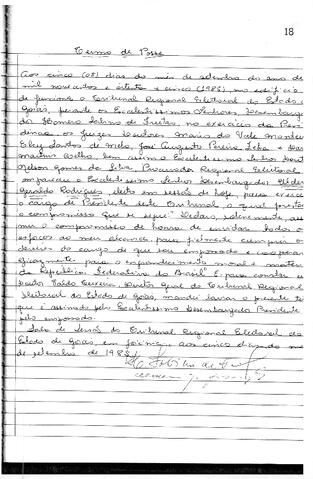 18
Termo de Posse
Aos cinco (05) dias do mês de setembro do ano de
mil novecentos e oitenta e cinco (1985), no edifício
funciona o Tribunal Regional Eleitoral do Estado
Goiás, perante os Excelentíssimos Senhores Desembarga
dor Homero Sabino de Freitas no exercício da Presi
dência, os Juízes Doutores Mauro do Vale
Santos de Melo, José Augusto Pereira
Martins Coelho, bem assim o Excelentíssimo Senhor Dout
Nelson Gomes da Silva, Procurador Regional Eleitoral,
compareceu o Excelentíssimo Senhor Desembargador
Geraldo Rodrigues, eleito em sessão de hoje, para exerce
o cargo de Presidente deste Tribunal, o qual prestou
o compromisso que se segue: "Declaro, solenemente, as
o compromisso de honra de envidar todos os
esforços ao meu alcance, para fielmente cumprir os
deveres do cargo de que sou empossado e cooperar
para o engrandecimento moral e
da República Federativa do Brasil". E, para constar e
Doutor Valdo Teixeira, Diretor Geral do Tribunal Regional
Eleitoral do Estado de Goiás, mandei lavrar o presente te
que é assinado pelo Excelentíssimo Desembargador Presidente
pelo empossado.
Sala de Sessões do Tribunal Regional Eleitoral do
Estado de Goiás, em Goiânia, aos cinco dias do mês
de setembro de 1985.